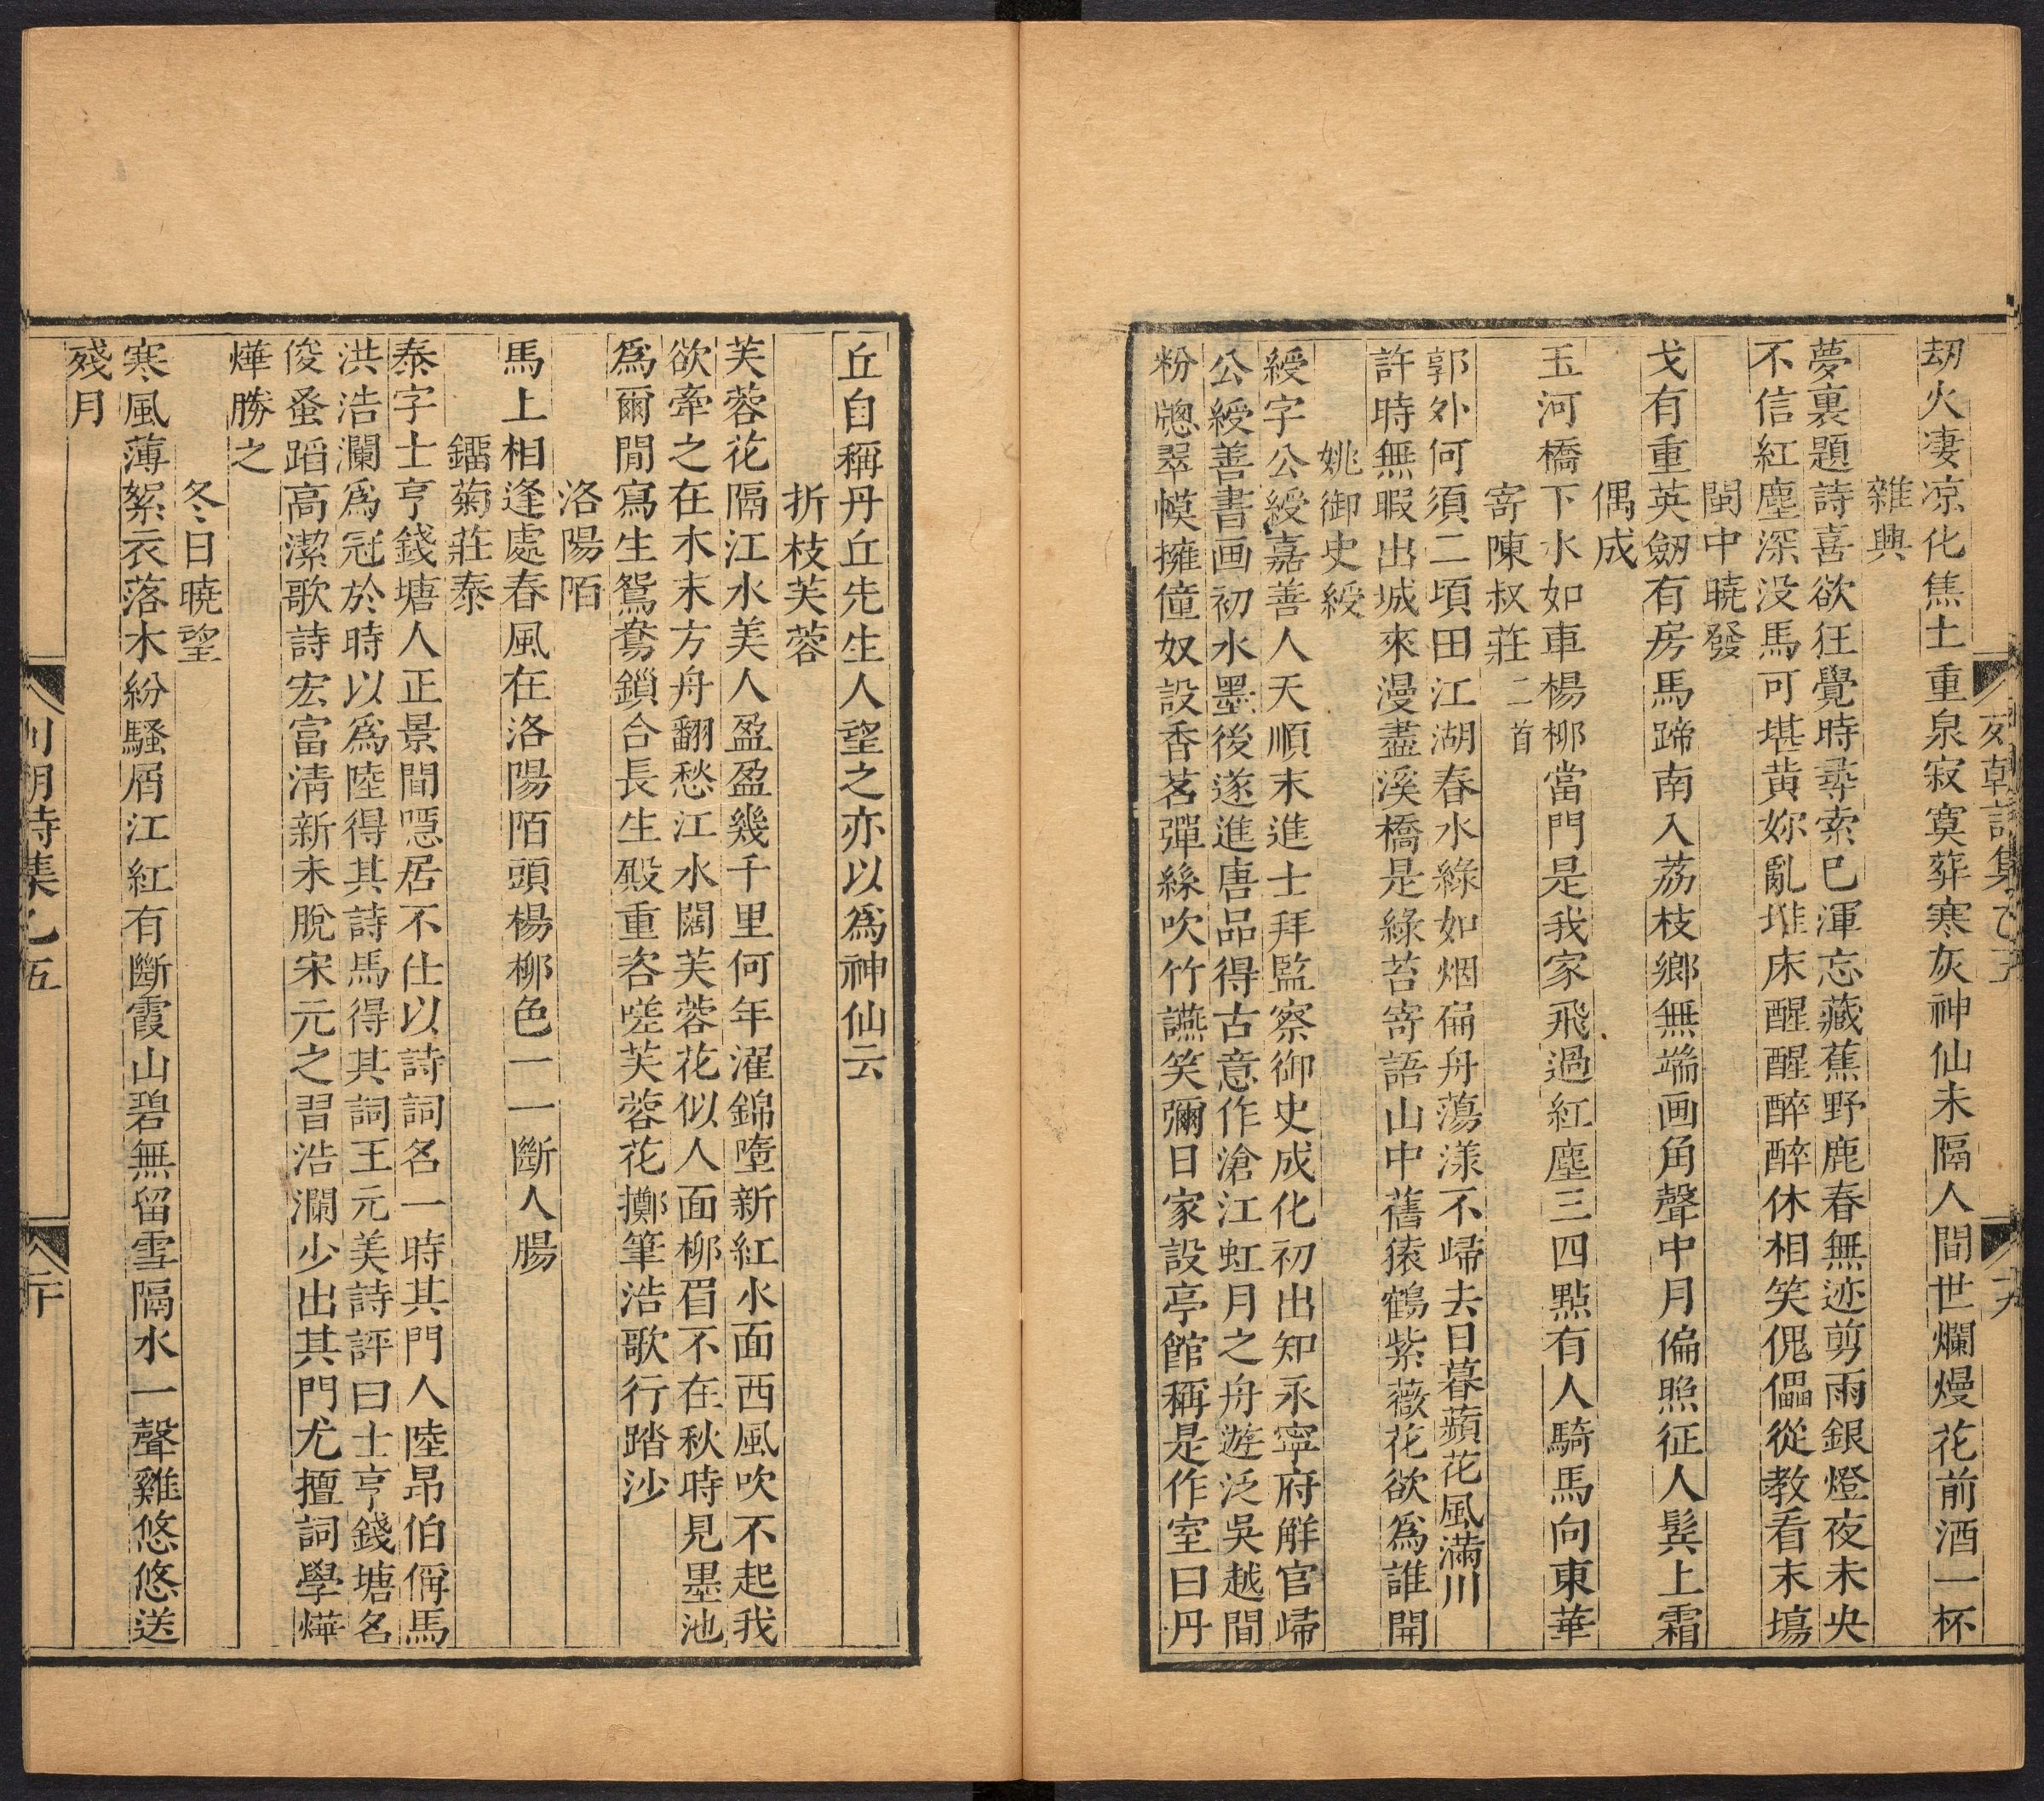 列朝詩集乙五
十九
刼火凄凉化焦土重泉寂寞葬寒灰神仙未隔人間世爛熳花前酒一杯
雜興
夢裏題詩喜欲狂覺時尋索已渾忘藏蕉野鹿春無迹剪雨銀燈夜未央
不信紅塵深没馬可堪黄妳亂堆床醒醒醉醉休相笑傀儡從教看末塲
閩中曉發
戈有重英劒有房馬蹄南入荔枝鄉無端画角聲中月偏照征人髩上霜
偶成
玉河橋下水如車楊柳當門是我家飛過紅塵三四點有人騎馬向東華
寄陳叔莊二首
郭外何須二頃田江湖春水綠如烟扁舟蕩漾不歸去日暮蘋花風滿川
許時無暇出城來漫盡溪橋是綠苔寄語山中舊猿鶴紫薇花欲爲誰開
姚御史綬
綬字公綬嘉善人天順末進士拜監察御史成化初出知永寧府解官歸
公綬善書画初水墨後遂進唐品得古意作滄江虹月之舟遊泛吳越間
粉牕翠幙擁僮奴設香茗彈絲吹竹讌笑彌日家設亭館稱是作室曰丹
丘自稱丹丘先生人望之亦以爲神仙云
折枝芙蓉
芙蓉花隔江水美人盈盈幾千里何年濯錦墮新紅水面西風吹不起我
欲牽之在木末方舟翻愁江水闊芙蓉花似人面柳眉不在秋時見墨池
爲爾閒寫生鴛鴦鎖合長生殿重咨嗟芙蓉花擲筆浩歌行踏沙
洛陽陌
馬上相逢處春風在洛陽陌頭楊柳色一一斷人腸
鐳菊莊泰
泰字士亨錢塘人正景間隱居不仕以詩詞名一時其門人陸昂伯俑馬
洪浩瀾爲冠於時以爲陸得其詩馬得其詞王元美詩評曰士亨錢塘名
俊蚤蹈高潔歌詩宏富清新未脫宋元之習浩瀾少出其門尤擅詞學燁
燁勝之
冬日曉望
寒風薄絮衣落木紛騷屑江紅有斷霞山碧無留雪隔水一聲雞悠悠送
殘月
列朝詩集乙五
二十